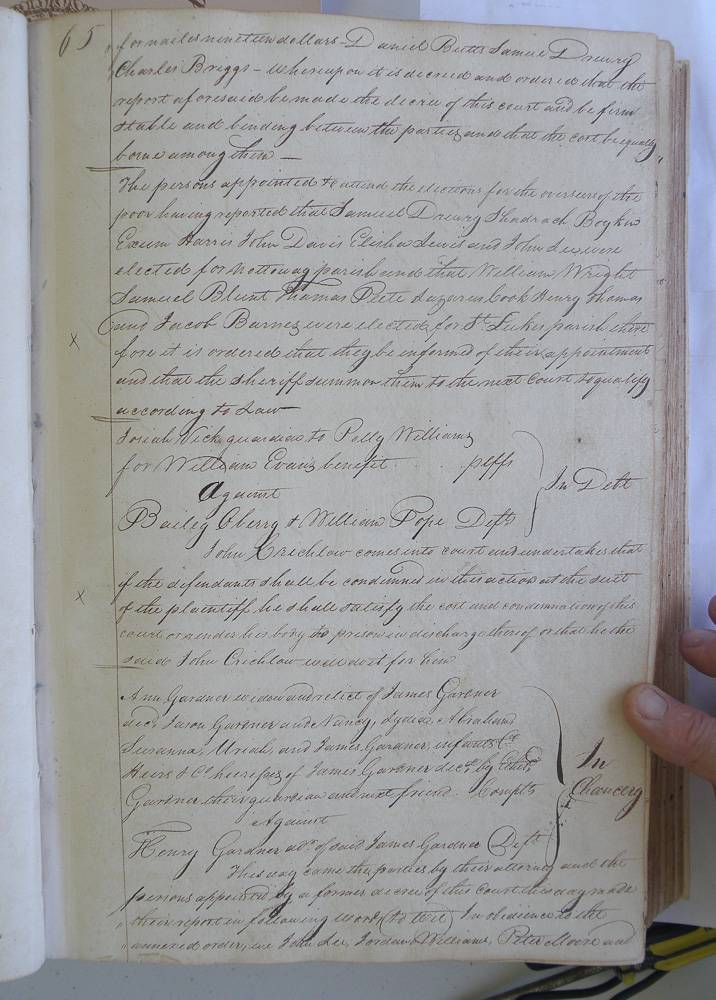 65
for nailes nineteen dollars - Daniel Butts Samuel Drewry
Charles Briggs - Whereupon it is decreed and ordered that the
report aforesaid be made the decree of this court and be firm
stable and binding between the parties and that the cost be equally
borne among them -
The persons appointed to attend the elections for the overseers of the
poor having reported that Samuel Drewry Shadrach Boykin
Exum Harris John Davis Elisha Lewis and John Lee were
elected for Nottoway parish and that William Wright
Samuel Blunt Thomas Pete Lazarus Cook Henry Thomas
and Jacob Barnes were elected for St. Lukes parish there
fore it is ordered that they be informed of their appointment
and that the sheriff summon them to the next Court to qualify
x
according to Law
Josiah Vick guardian to Polly Williams
for William Evans benefit plffs
against
In Debt
Bailey Oberry & William Pope Defts
John Crichlow comes into court and undertakes that
if the defendants shall be condemned in this action at the suit
x
of the plaintiff he shall satisfy the cost and condemnation of this
court or render his body to prison in discharge thereof or that he the
said John Crichlow will do it for him
Ann Gardner widow and relict of James Gardner
decd. Jason Gardner and Nancy, Lydia, Abraham
Susanna, Uriah, and James Gardner, infants &c
Heirs & Co heiresses of James Gardner decd. by
Gardner their guardian and next friend. Complts
Against
In Chancery
Henry Gardner adr. of said James Gardner Deft
This day came the parties by their attorney and the
persons appointed by a former decree of this court this day made
their report in following words (to wit) In obedience to the
annexed order, we John Lee, Jordan Williams, Peter Moore and